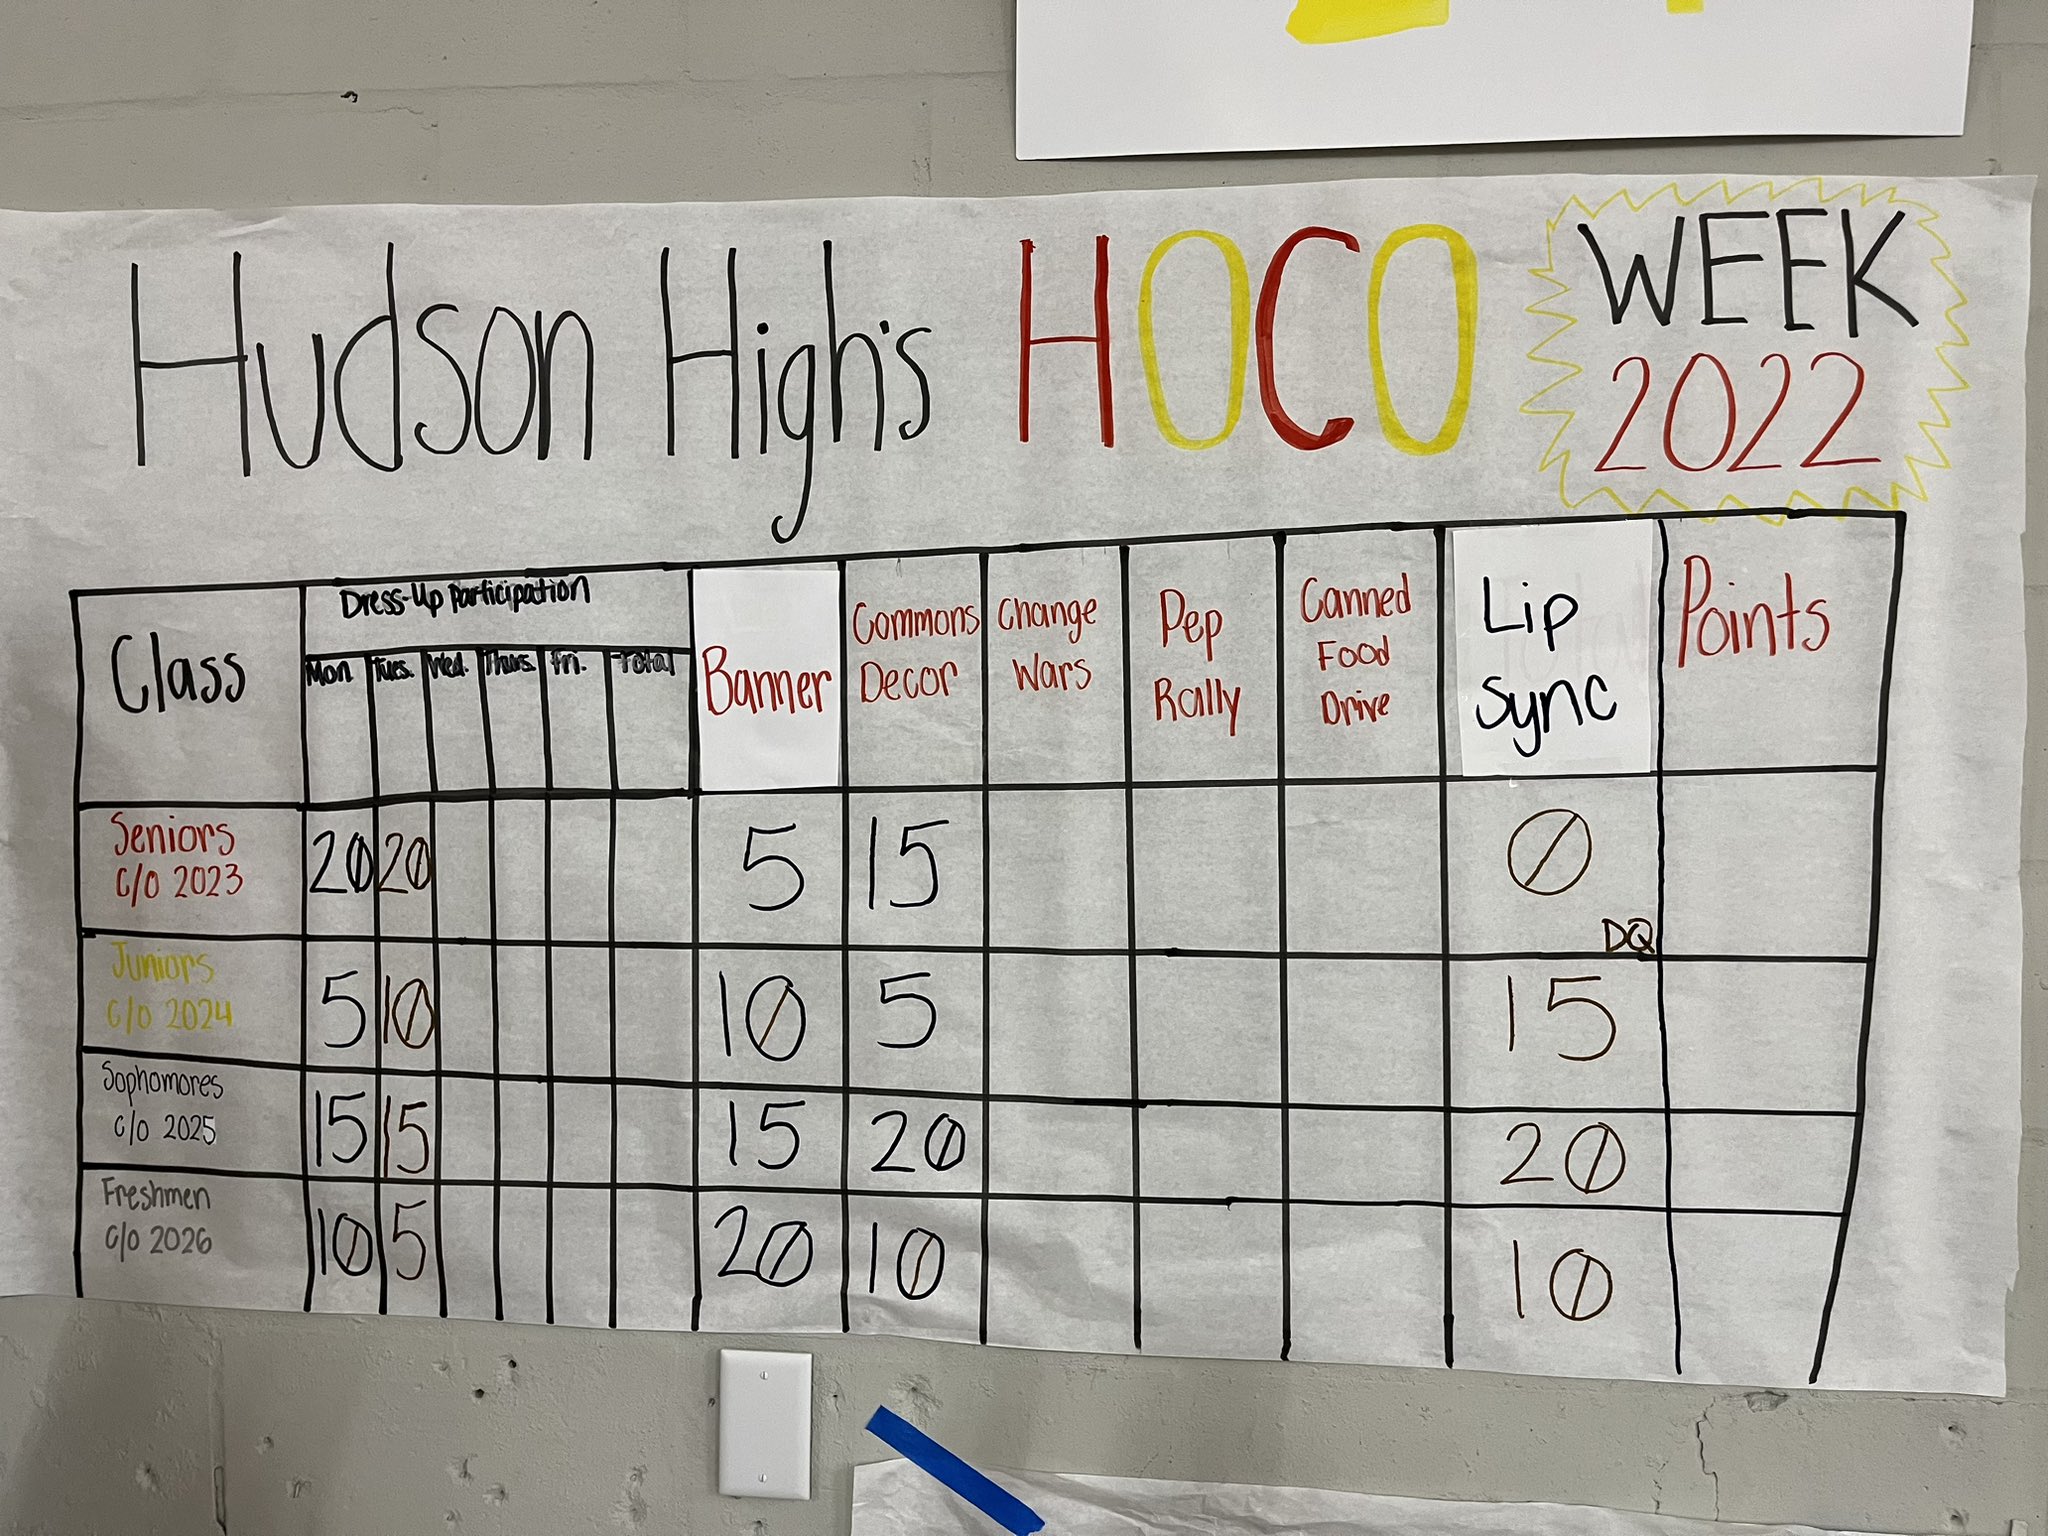 Hudson High's HOCO WEEK
2022
Class
Dress-Up Participation
Mon Tues. Wed. Thurs. Fri. Total
Banner
Commons
Decor
Change
Wars
Pep
Rally
Canned
Food
Drive
Lip
Sync
Points
Seniors
C/O 2023
20 20 5 15 0
DQ
Juniors
C/O 2024
5 10 10 5 15
Sophomores
C/O 2025
15 15 15 20 20
Freshmen
C/O 2026
10 5 20 10 10